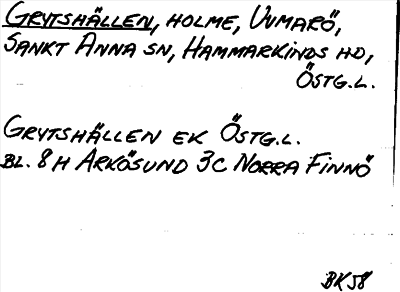 GRYTSHÄLLEN, HOLME, UVMARÖ,
SANKT ANNA SN, HAMMARKINDS HD,
ÖSTG.L.
GRYTSHÄLLEN EK ÖSTG.L.
BL. 8 H ARKÖSUND 3C NORRA FINNÖ
BK 58